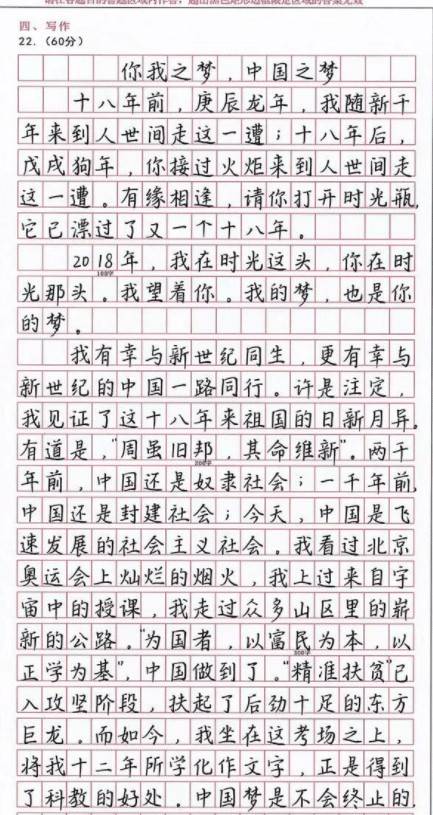 请在各题目的答题区域内作答，超出黑色矩形边框限定区域的答案无效
四、写作
22.（60分）
你我之梦，中国之梦
十八年前，庚辰龙年，我随新千
年来到人世间走这一遭；十八年后，
戊戌狗年，你接过火炬来到人世间走
这一遭。有缘相逢，请你打开时光瓶，
它已漂过了又一个十八年。
2018年，我在时光这头，你在时
100字
光那头。我望着你。我的梦，也是你
的梦。
我有幸与新世纪同生，更有幸与
新世纪的中国一路同行。许是注定，
我见证了这十八年来祖国的日新月异。
有道是，“周虽旧邦，其命维新”。两千
200字
年前，中国还是奴隶社会；一千年前，
中国还是封建社会；今天，中国是飞
速发展的社会主义社会。我看过北京
奥运会上灿烂的烟火，我上过来自宇
宙中的授课，我走过众多山区里的崭
新的公路。“为国者，以富民为本，以
300字
正学为基”，中国做到了。“精准扶贫”已
入攻坚阶段，扶起了后劲十足的东方
巨龙。而如今，我坐在这考场之上，
将我十二年所学化作文字，正是得到
了科教的好处。中国梦是不会终止的，